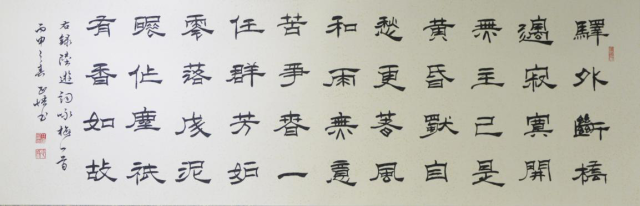 驛外斷橋
邊寂寞開
無主已是
黃昏獨自
愁更著風
和雨無意
苦爭春一
任群芳妒
零落成泥
碾作塵祇
有香如故
右錄陸遊詞咏梅一首
丙申之春書